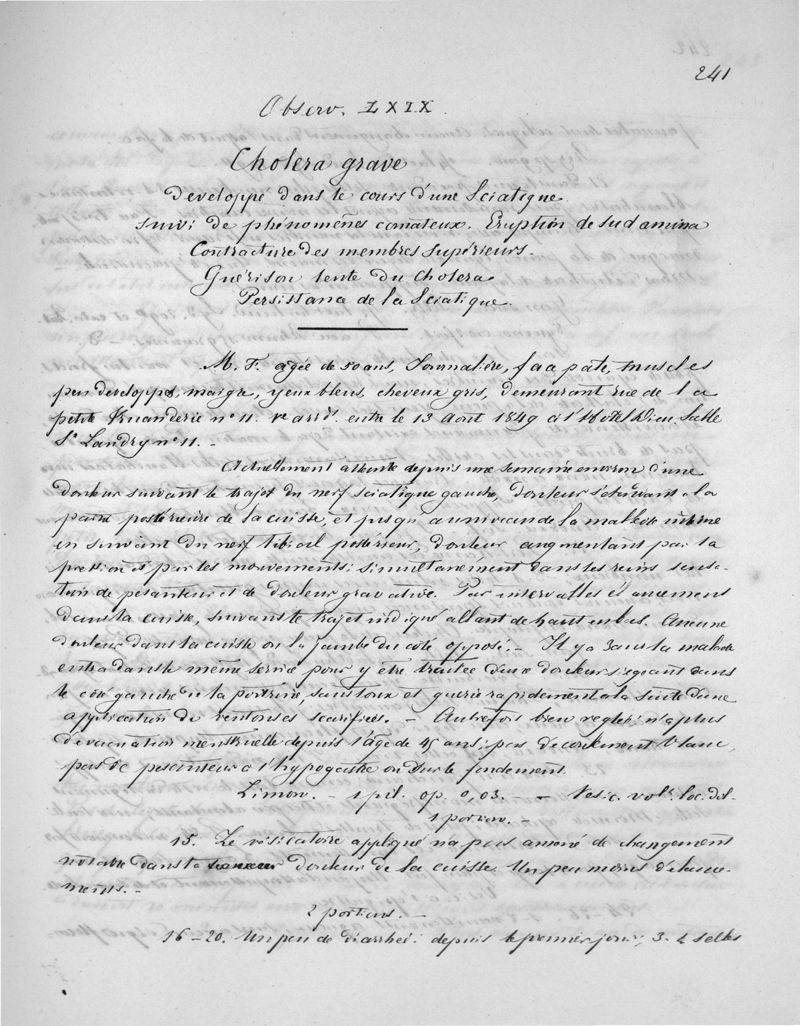 241
Observ. LXIX.
Cholera grave
développé dans le cours d'une Sciatique
suivi de phénomènes comateux. Eruption de sudamina
Contracture des membres supérieurs.
Guérison lente du Cholera
Persistance de la Sciatique.
M. F. agée de 50 ans, Journalière, face pâle, muscles
peu developpés, maigre, yeux bleus, cheveux gris, demeurant rue de la
petite Truanderie n° 11. Ve arrt. entre le 13 Août 1849 à l'Hotel Dieu. Salle
St Landry n° 11. -
Actuellement atteinte depuis une semaine environ d'une
douleur suivant le trajet du nerf sciatique gauche, douleur suivant la
partie postérieure de la cuisse, et jusqu'au niveau de la malléole interne
en suivant du nerf tibial postérieur, douleur augmentant par la
pression et par les mouvements; simultanément dans les reins sensa-
tion de pesanteur et de douleur gravative. Par intervalles élancemens
dans la cuisse, suivant le trajet indiqué allant de haut en bas. Aucune
douleur dans la cuisse ou la jambe du côté opposé. - Il y a 3 ans la malade
entra dans le même service pour y être traitée d'une douleur siégeant dans
le côté gauche de la poitrine, sans toux et guérie rapidement à la suite d'une
application de ventouses scarifiées. - Autrefois bien reglée; n'a plus
d'évacuation menstruelle depuis l'âge de 45 ans; pas d'écoulement blanc,
pas de pesanteur à l'hypogastre ou sur le fondement.
Limon. - 1 pil. op. 0,03. - Vesic. vol. loc. dol.
1 portion. -
15. Le vésicatoire appliqué n'a pas amené de changement
notable dans la douleur de la cuisse. Un peu moins d'élance-
mens. -
2 portions. -
16-20. Un peu de diarrhée depuis le premier jour; 3. 4 selles